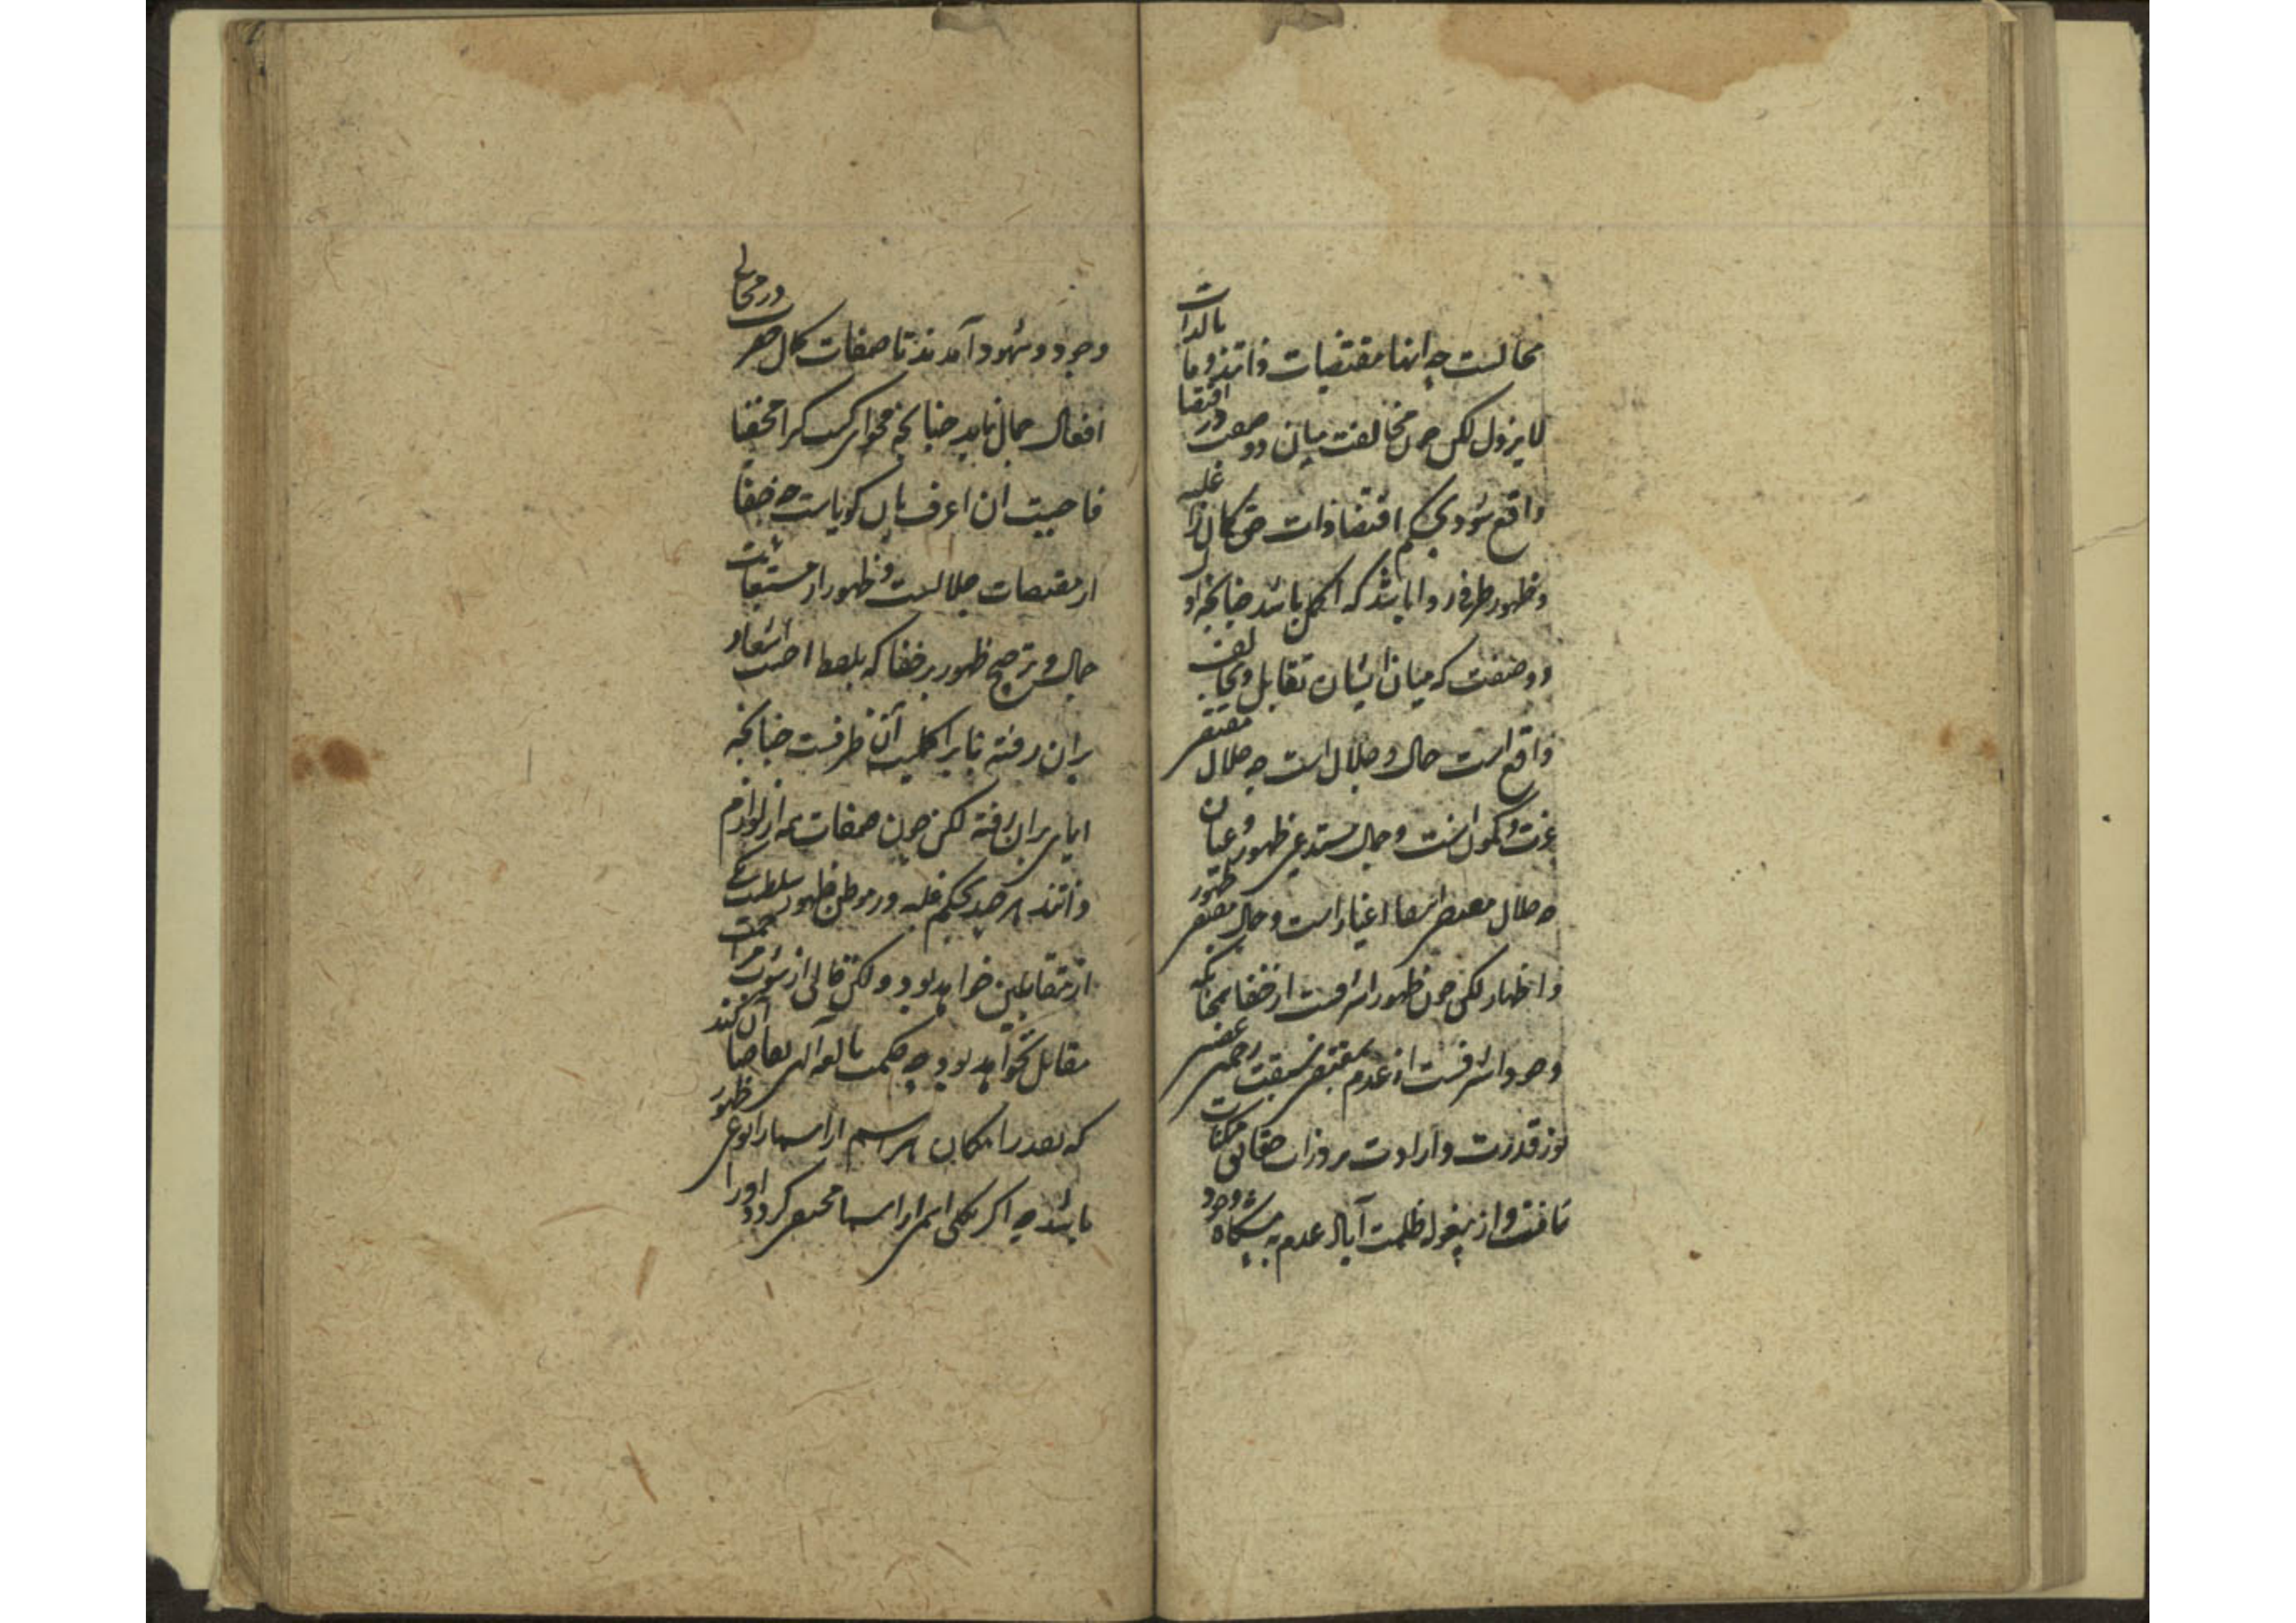 محالست چه اینها مقتضیات ذاتند و ما بالذات
لا یزول لکن چون مخالفت میان دو صفت در اقتضا
واقع شود بحکم اقتضا ذات حق کمال را غلبه
و ظهور طرفی روا باشد که اکمل باشد چنانچه از
دو صفت که میان ایشان تقابل و تخالف
واقع است جمال و جلال است چه جلال مقتضی
عزت و کمون است و جمال مستدعی ظهور و عیان
چه جلال اغیار است و جمال مقتضی ظهور
و اظهار لکن چون ظهور اشرفست از خفا چنانکه
وجود اشرفست از عدم بمقتضی سبقت رحمتی غضبی
نور قدرت و ارادت بر وزات حقایق ممکنات
تافت و از پیغوله ظلمت آباد عدم به مشکاة وجود
وجود و شهود آمدند تا صفات کمال در مجالی
افعال جمال نماید چنانچه فحوای کنت کنزا مخفیا
فاحببت ان اعرف بآن گویاست چه خفا
از مقتضیات جلالست و ظهور از مستتبعات
جمال و ترجیح ظهور بر خفا که بلفظ احببت اشعار
بران رفته بنا بر اکملیت آن طرفست چنانچه
ایمای بران رفته لکن چون صفات همه از لوازم
ذاتند هر چند بحکم غلبه در موطن ظهور سلطنت یکی
از متقابلین خواهد بود و لکن خالی از شوب
مقابل نخواهد بود چه حکمت بالغه الهی تقاضا آن کند
که بقدر امکان هر اسم از اسما را نوعی ظهور
باشد چه اگر یکی اسمی از اسما مختصر گردد او را